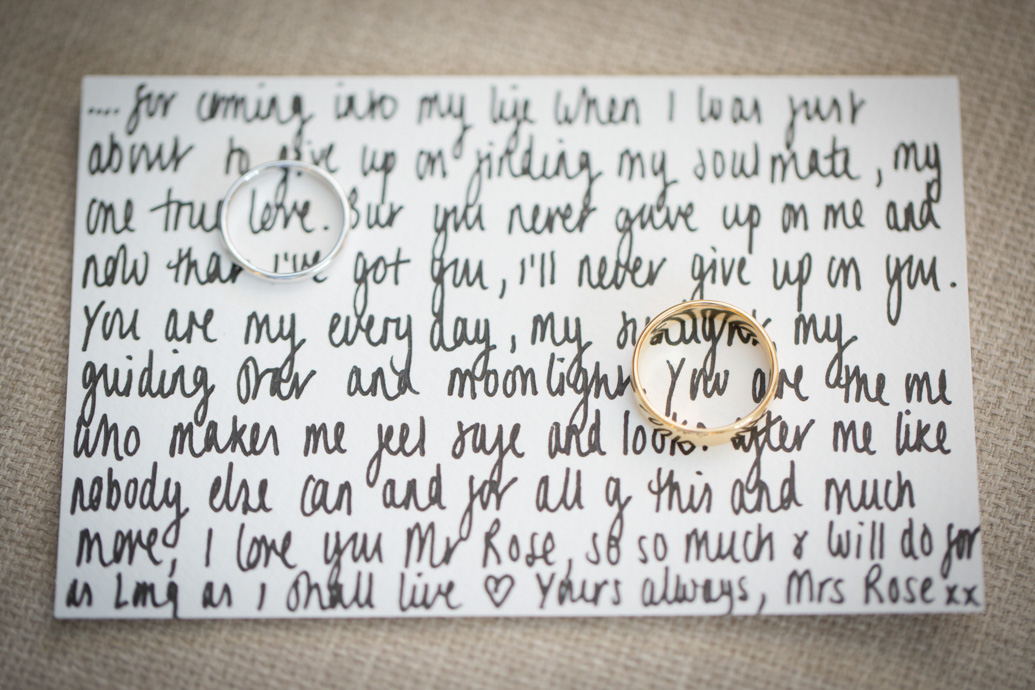 .... for coming into my life when I was just
about to give up on finding my soulmate, my
one true love. But you never gave up on me and
now that I've got you, I'll never give up on you.
You are my every day, my my
guiding star and moonlight. You are the one
who makes me feel safe and looks after me like
nobody else can and for all of this and much
more, I love you Mr Rose, so so much & will do for
as long as I shall live ♡ Yours always, Mrs Rose xx